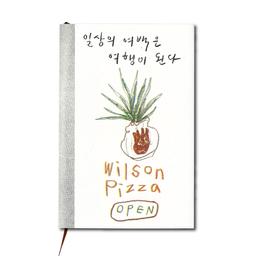 일상의 여백은
여행이 된다
Wilson
Pizza
OPEN